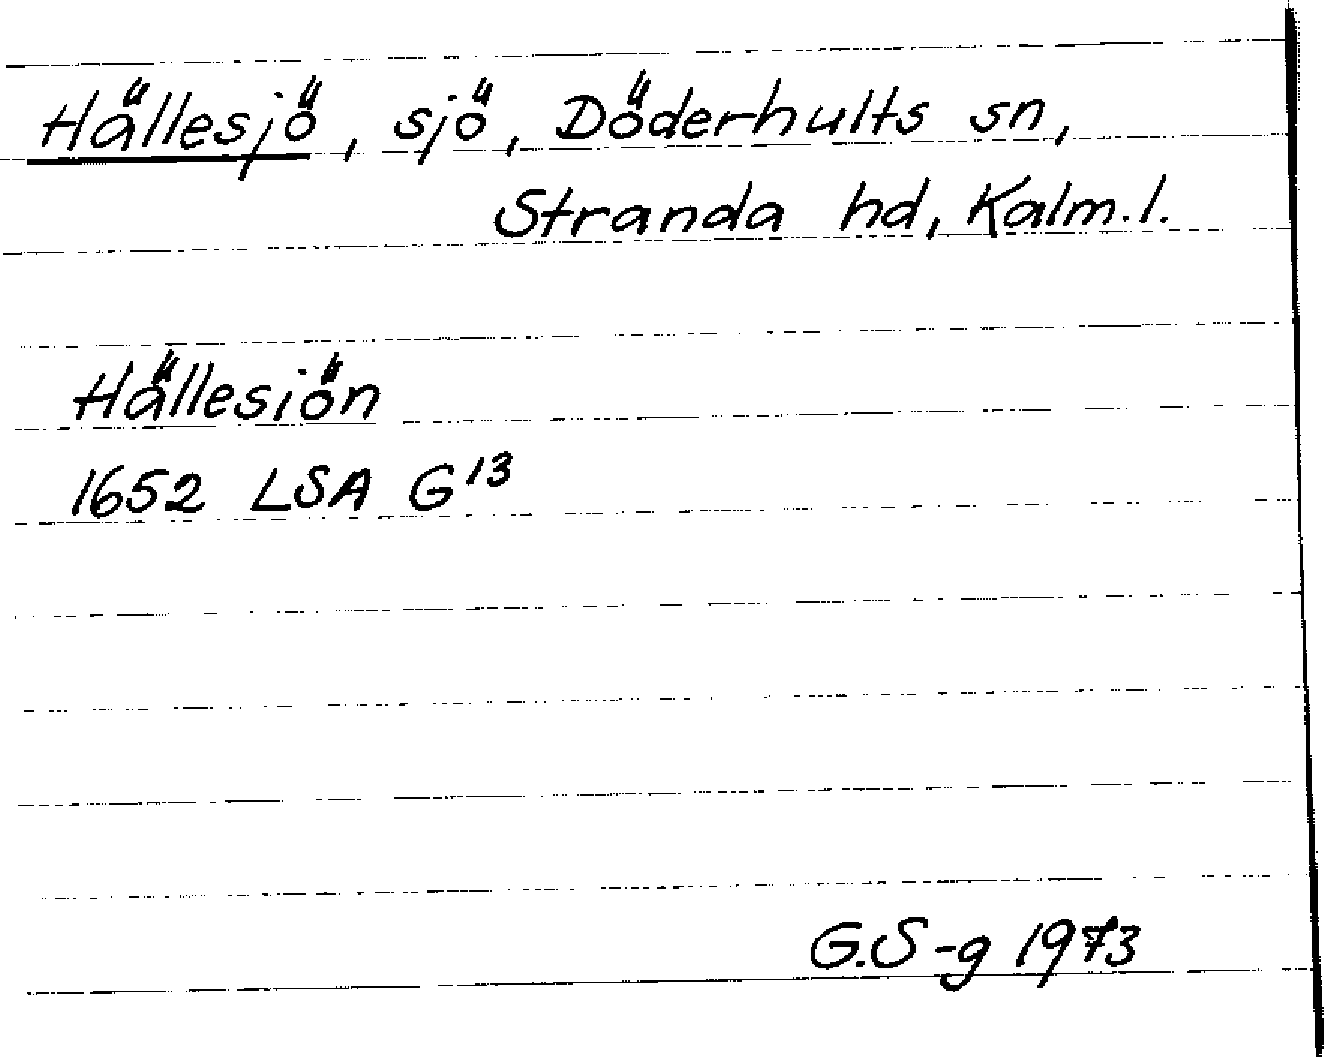 Hällesjö, sjö, Döderhults sn,
Stranda hd, Kalm.l.
Hällesiön
1652 LSA G¹³
G.S-g 1973